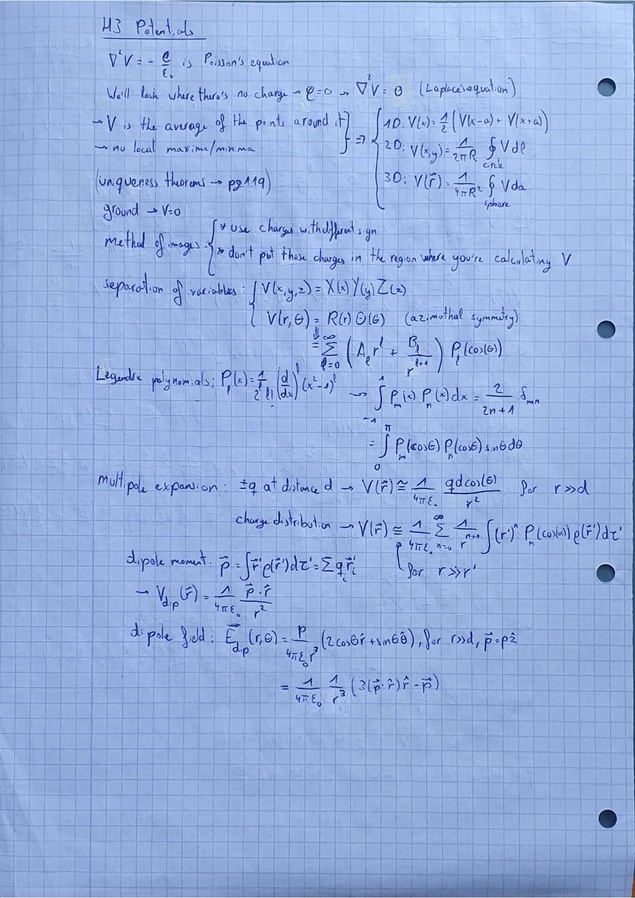 H3 Potentials
∇²V = -ρ/ε₀ is Poisson's equation
We'll look where there's no charge → ρ=0 → ∇²V = 0 (Laplace's equation)
→ V is the average of the points around it
→ no local maxima/minima
} ⇒ { 1D: V(x) = 1/2 (V(x-a) + V(x+a))
2D: V(x,y) = 1/2πR ∮circle V dl
3D: V(r⃗) = 1/4πR² ∮sphere V da
(uniqueness theorems → pg 119)
ground → V=0
method of images: { * use charges with different sign
* don't put those charges in the region where you're calculating V
separation of variables: { V(x,y,z) = X(x) Y(y) Z(z)
V(r,θ) = R(r) Θ(θ) (azimuthal symmetry)
⇓
= ∑_{l=0}^{∞} (A_l r^l + B_l/r^{l+1}) P_l(cos(θ))
Legendre polynomials: P_l(x) = 1/2^l l! (d/dx)^l (x²-1)^l → ∫_{-1}^{1} P_m(x) P_n(x) dx = 2/2n+1 δ_mn
= ∫_0^π P_m(cosθ) P_n(cosθ) sinθ dθ
multipole expansion: ±q at distance d → V(r⃗) ≅ 1/4πε₀ qdcos(θ)/r² for r≫d
charge distribution → V(r⃗) ≅ 1/4πε₀ ∑_{n=0}^{∞} 1/r^{n+1} ∫(r')^n P_n(cos(α)) ρ(r⃗') dτ'
for r≫r'
dipole moment: p⃗ = ∫r⃗'ρ(r⃗')dτ' = ∑q_i r⃗_i'
→ V_dip(r⃗) = 1/4πε₀ p⃗·r̂/r²
dipole field: E⃗_dip(r,θ) = p/4πε₀r³ (2cosθ r̂ + sinθ θ̂), for r≫d, p⃗=pẑ
= 1/4πε₀ 1/r³ (3(p⃗·r̂)r̂ - p⃗)